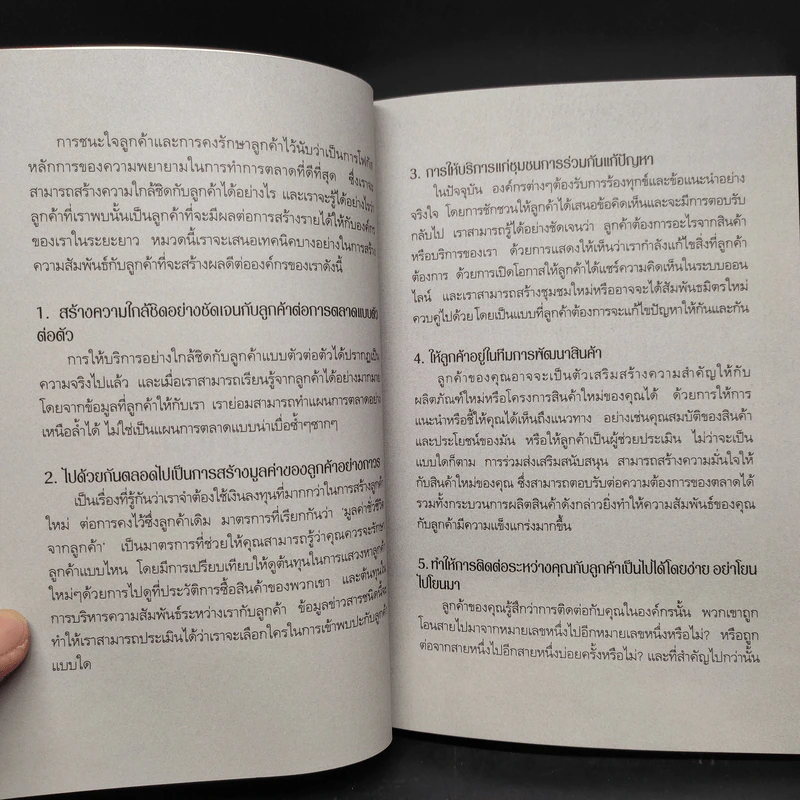 การชนะใจลูกค้าและการคงรักษาลูกค้าไว้นับว่าเป็นการโฟกัส
หลักการของความพยายามในการทำการตลาดที่ดีที่สุด ซึ่งเราจะ
สามารถสร้างความใกล้ชิดกับลูกค้าได้อย่างไร และเราจะรู้ได้อย่างไรว่า
ลูกค้าที่เราพบนั้นเป็นลูกค้าที่จะมีผลต่อการสร้างรายได้ให้กับองค์กร
ของเราในระยะยาว หมวดนี้เราจะเสนอเทคนิคบางอย่างในการสร้าง
ความสัมพันธ์กับลูกค้าที่จะสร้างผลดีต่อองค์กรของเราดังนี้
1. สร้างความใกล้ชิดอย่างชัดเจนกับลูกค้าต่อการตลาดแบบตัว
ต่อตัว
การให้บริการอย่างใกล้ชิดกับลูกค้าแบบตัวต่อตัวได้ปรากฏเป็น
ความจริงไปแล้ว และเมื่อเราสามารถเรียนรู้จากลูกค้าได้อย่างมากมาย
โดยจากข้อมูลที่ลูกค้าให้กับเรา เราย่อมสามารถทำแผนการตลาดอย่าง
เหนือล้ำได้ ไม่ใช่เป็นแผนการตลาดแบบน่าเบื่อซ้ำๆซากๆ
2. ไปด้วยกันตลอดไปเป็นการสร้างมูลค่าของลูกค้าอย่างถาวร
เป็นเรื่องที่รู้กันว่าเราจำต้องใช้เงินลงทุนที่มากกว่าในการสร้างลูกค้า
ใหม่ ต่อการคงไว้ซึ่งลูกค้าเดิม มาตรการที่เรียกกันว่า 'มูลค่าชั่วชีวิต
จากลูกค้า' เป็นมาตรการที่ช่วยให้คุณสามารถรู้ว่าคุณควรจะรักษา
ลูกค้าแบบไหน โดยมีการเปรียบเทียบให้ดูต้นทุนในการแสวงหาลูกค้า
ใหม่ๆด้วยการไปดูที่ประวัติการซื้อสินค้าของพวกเขา และต้นทุนใน
การบริหารความสัมพันธ์ระหว่างเรากับลูกค้า ข้อมูลข่าวสารชนิดนี้จะ
ทำให้เราสามารถประเมินได้ว่าเราจะเลือกใครในการเข้าพบปะกับลูกค้า
แบบใด
3. การให้บริการแก่ชุมชนการร่วมกันแก้ปัญหา
ในปัจจุบัน องค์กรต่างๆต้องรับการร้องทุกข์และข้อแนะนำอย่าง
จริงใจ โดยการชักชวนให้ลูกค้าได้เสนอข้อคิดเห็นและจะมีการตอบรับ
กลับไป เราสามารถรู้ได้อย่างชัดเจนว่า ลูกค้าต้องการอะไรจากสินค้า
หรือบริการของเรา ด้วยการแสดงให้เห็นว่าเรากำลังแก้ไขสิ่งที่ลูกค้า
ต้องการ ด้วยการเปิดโอกาสให้ลูกค้าได้แชร์ความคิดเห็นในระบบออน
ไลน์ และเราสามารถสร้างชุมชมใหม่หรืออาจจะได้สัมพันธมิตรใหม่
ควบคู่ไปด้วย โดยเป็นแบบที่ลูกค้าต้องการจะแก้ไขปัญหาให้กันและกัน
4. ให้ลูกค้าอยู่ในทีมการพัฒนาสินค้า
ลูกค้าของคุณอาจจะเป็นตัวเสริมสร้างความสำคัญให้กับ
ผลิตภัณฑ์ใหม่หรือโครงการสินค้าใหม่ของคุณได้ ด้วยการให้การ
แนะนำหรือชี้ให้คุณได้เห็นถึงแนวทาง อย่างเช่นคุณสมบัติของสินค้า
และประโยชน์ของมัน หรือให้ลูกค้าเป็นผู้ช่วยประเมิน ไม่ว่าจะเป็น
แบบใดก็ตาม การร่วมส่งเสริมสนับสนุน สามารถสร้างความมั่นใจให้
กับสินค้าใหม่ของคุณ ซึ่งสามารถตอบรับต่อความต้องการของตลาดได้
รวมทั้งกระบวนการผลิตสินค้าดังกล่าวยิ่งทำให้ความสัมพันธ์ของคุณ
กับลูกค้ามีความแข็งแกร่งมากขึ้น
5. ทำให้การติดต่อระหว่างคุณกับลูกค้าเป็นไปได้โดยง่าย อย่าโยน
ไปโยนมา
ลูกค้าของคุณรู้สึกว่าการติดต่อกับคุณในองค์กรนั้น พวกเขาถูก
โอนสายไปมาจากหมายเลขหนึ่งไปอีกหมายเลขหนึ่งหรือไม่? หรือถูก
ต่อจากสายหนึ่งไปอีกสายหนึ่งบ่อยครั้งหรือไม่? และที่สำคัญไปกว่านั้น